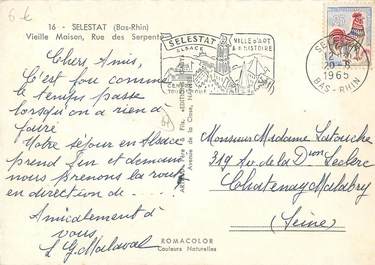 6 €
16 - SELESTAT (Bas-Rhin)
Vieille Maison, Rue des Serpents
Chers Amis,
C'est fou comme
le temps passe
lorsqu'on a rien à
faire
Notre séjour en Alsace
prend fin et demain
nous prenons la route
en direction de . . . .
Amicalement à
vous,
G. Malaval
SELESTAT
ALSACE
VILLE D'ART
& D'HISTOIRE
CENTRE
TOURISTIQUE
SELESTAT
12 H
20 - 8
1965
BAS-RHIN
Monsieur Madame Latouche
319 Av. de la Dion Leclerc
Chatenay Malabry
(Seine)
ROMACOLOR
Couleurs Naturelles